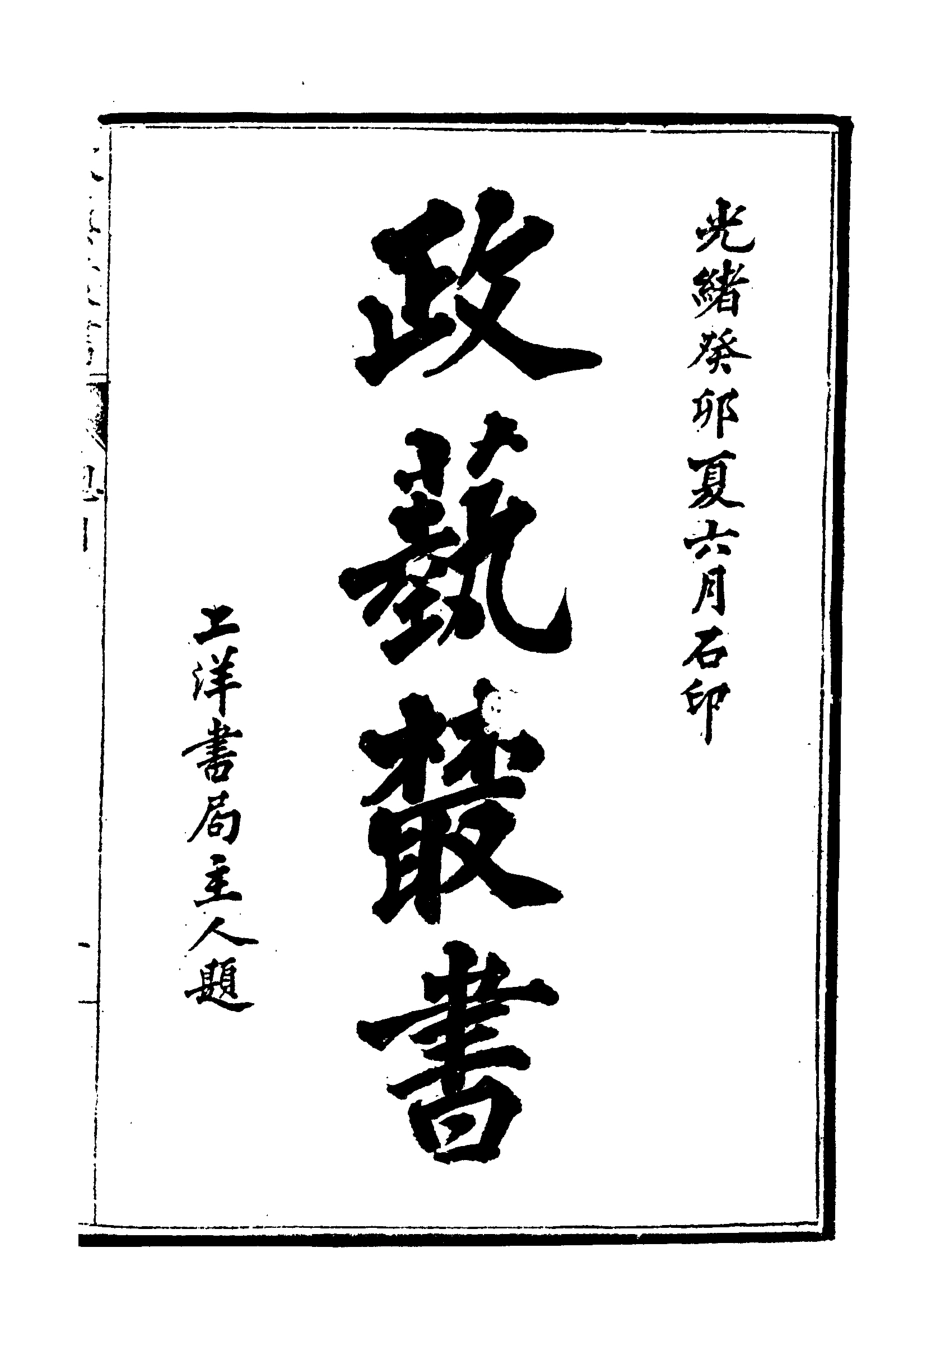 光緒癸卯夏六月石印
政藝叢書
上洋書局主人題